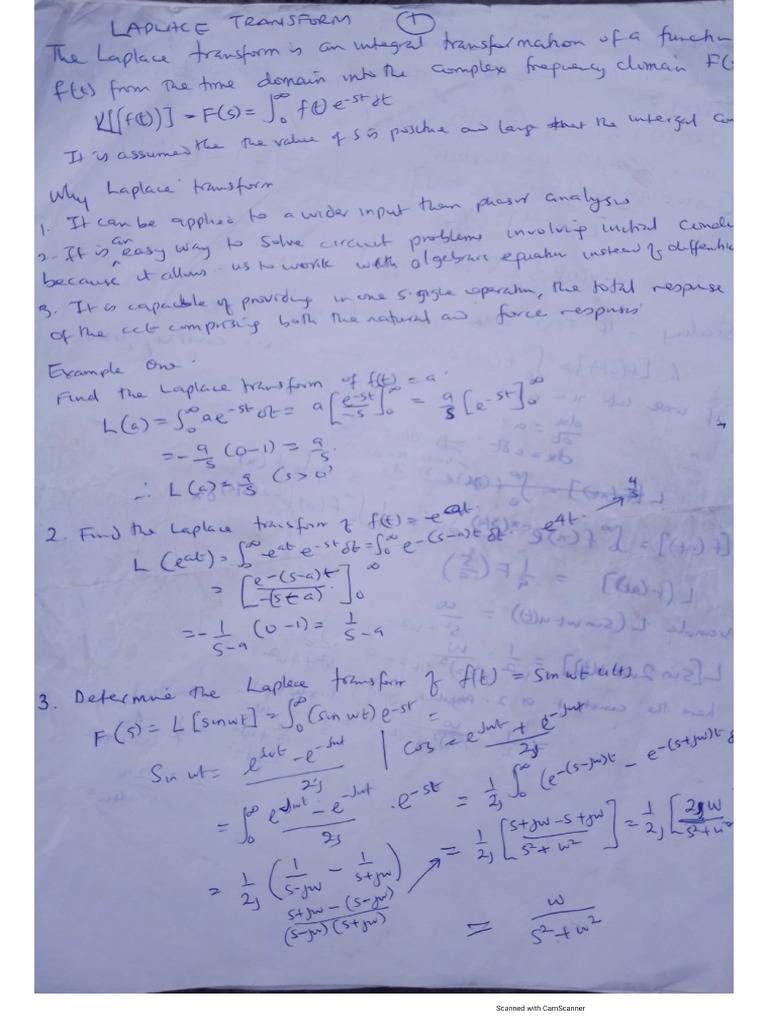 LAPLACE TRANSFORM 1
The Laplace transform is an integral transformation of a functi
f(t) from the time domain into the complex frequency domain F(s
L[f(t)] = F(s) = ∫₀^∞ f(t) e^-st dt
It is assumed the the value of s is positive and large that the intergal co
Why Laplace transform
1. It can be applied to a wider input than phasor analysis
2. It is an easy way to solve circuit problems involving initial condi
because it allows us to work with algebraic equation instead of differentia
3. It is capable of providing in one single operation, the total response
of the cct comprising both the natural and force responses
Example One.
Find the Laplace transform of f(t) = a
L(a) = ∫₀^∞ a e^-st dt = a [e^-st / -s]₀^∞ = a/s [e^-st]₀^∞
= -a/s (0-1) = a/s.
∴ L(a) = a/s (s>0)
2. Find the Laplace transform of f(t) = e^at. e^4t
L(e^at) = ∫₀^∞ e^at e^-st dt = ∫₀^∞ e^-(s-a)t dt.
= [e^-(s-a)t / -(s-a)]₀^∞
= -1/(s-a) (0-1) = 1/(s-a)
3. Determine the Laplace transform of f(t) = Sin wt u(t).
F(s) = L[sin wt] = ∫₀^∞ (sin wt) e^-st =
Sin wt = (e^jwt - e^-jwt)/2j | Cos = (e^jwt + e^-jwt)/2j
= ∫₀^∞ (e^jwt - e^-jwt)/2j . e^-st = 1/2j ∫₀^∞ (e^-(s-jw)t - e^-(s+jw)t
= 1/2j (1/(s-jw) - 1/(s+jw)) = 1/2j [(s+jw-s+jw)/(s²+w²)] = 1/2j [2jw/(s²+w²)
(s+jw-(s-jw))/((s-jw)(s+jw)) = w/(s²+w²)
Scanned with CamScanner